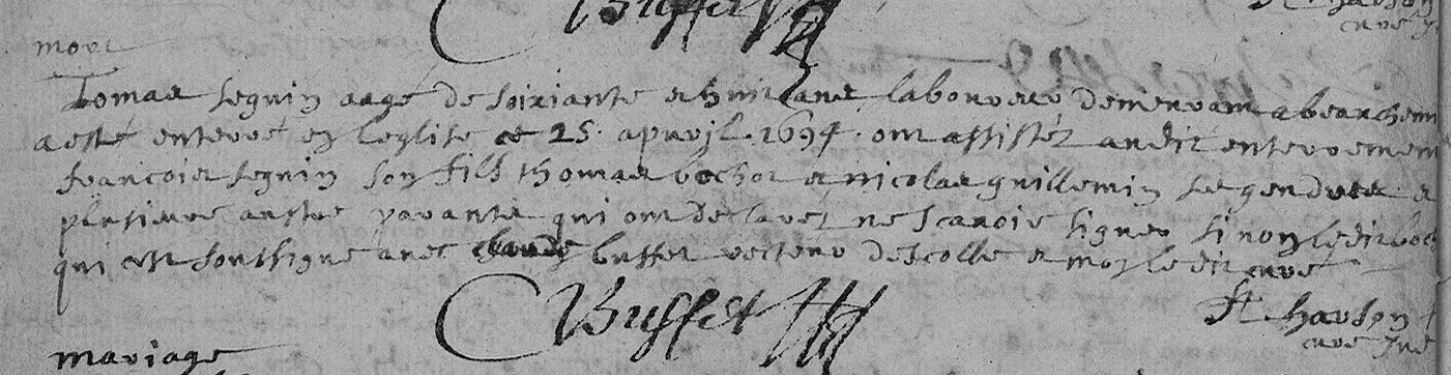 Buffet
cure
mort
Tomas seguin aagé de soixiante et huit ans laboureur demeurant a
a esté enterré en leglise ce 25. apvril. 1694. ont assistéz audit enterrement
francois seguin son fils thomas bochot et nicolas guillemin ses gendres et
plusieurs austre parants qui ont declarez ne scavoir signer sinon ledit
qui est soussigné avec claude buffet recteur descolle et moy ledit curé
C Buffet
hauson
cure
mariage